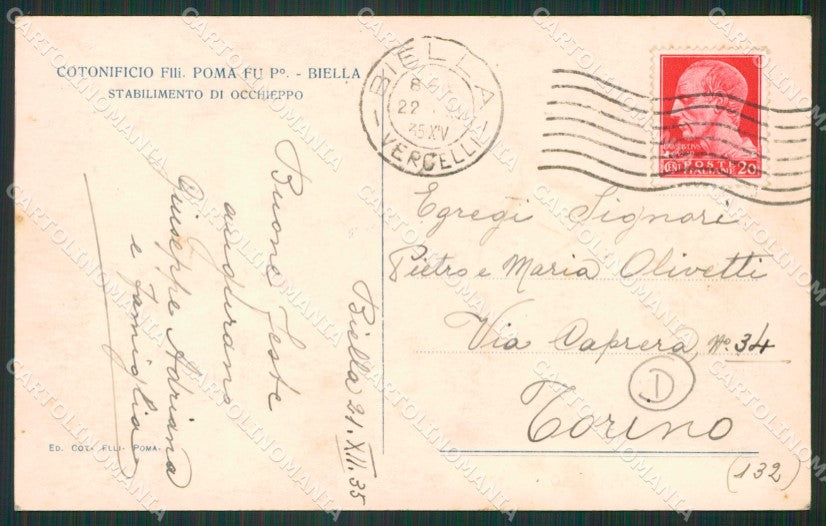 COTONIFICIO Flli. POMA FU Pº. - BIELLA
STABILIMENTO DI OCCHIEPPO
BIELLA
22
35 XIV
VERCELLI
POSTE
ITALIANE
20
Buone feste
augurano
Giuseppe Adriana
e famiglia
Biella 21.XII.35
Egregi Signori
Pietro e Maria Olivetti
Via Caprera, Nº. 34
Torino
D
(132)
ED. COT. FLLI. POMA.
CARTOLINOMANIA